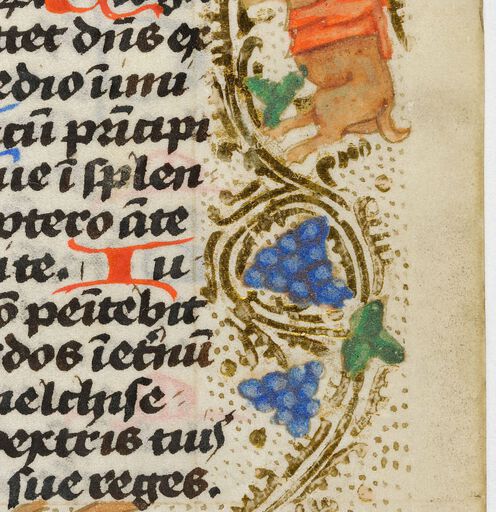 ttet dn̄s ex
edio īimi
cū prīcipi
ue ī splen
utero āte
ite. Iu
ō peītebit
rdos īetnū
melchise
dextris tuis
sue reges.